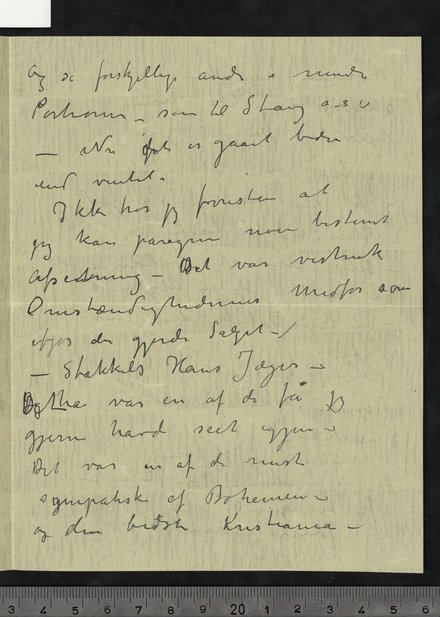 og de forskjellige andre e mindre
Portrær – som til Stang o.s.v
– Nu er gaaet bedre
end ventet –
Ikke har jeg forresten at
jeg kan paaregne noen bestemt
Afsætning – Det var vesentlig
Omstændighederne som
ifjor der gjorde Salget –
– Stakkels Hans Jæger –
Han var en af de få jeg
gjerne havd seet igjen –
Det var en af de mest
sympatiske af Bohemen –
og den bedste Kristiania –
3 4 5 6 7 8 9 20 1 2 3 4 5 6